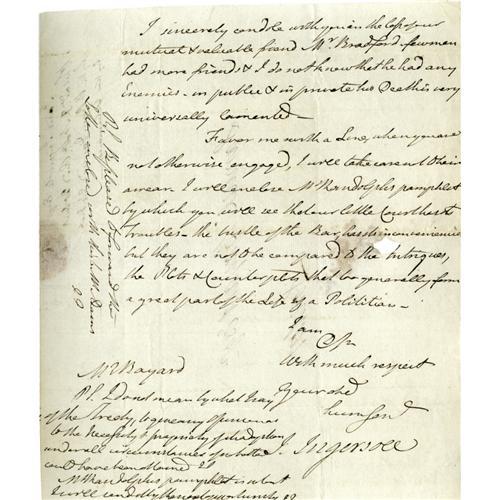 I sincerely condole with you in the loss of our
mutual & valuable friend Mr Bradford. few men
had more friends & I do not know that he had any
Enemies - in public & in private his Death is very
universally lamented -
Favor me with a Line, when you are
not otherwise engaged, I will take care not to be in
arrear. I will enclose Mr Randolphs pamphlet
by which you will see that our little Court has its
Troubles - the bustle of the Bar, has its inconveniencies
but they are not to be compared to the Intrigues,
the Plots & Counterplots that too generally form
a great part of the Life of a Politician -
I am
Sir
With much respect
Your obd
hum Servt
Ingersoll
Mr Bayard
P.S. I do not mean by what I say
of the Treaty, to give any opinion as
to the Necessity & propriety of
under all circumstances
could have been obtained
Mr Randolphs pamphlet is about
P.S. Be pleased to forward the
Letter enclosed with this to Mr